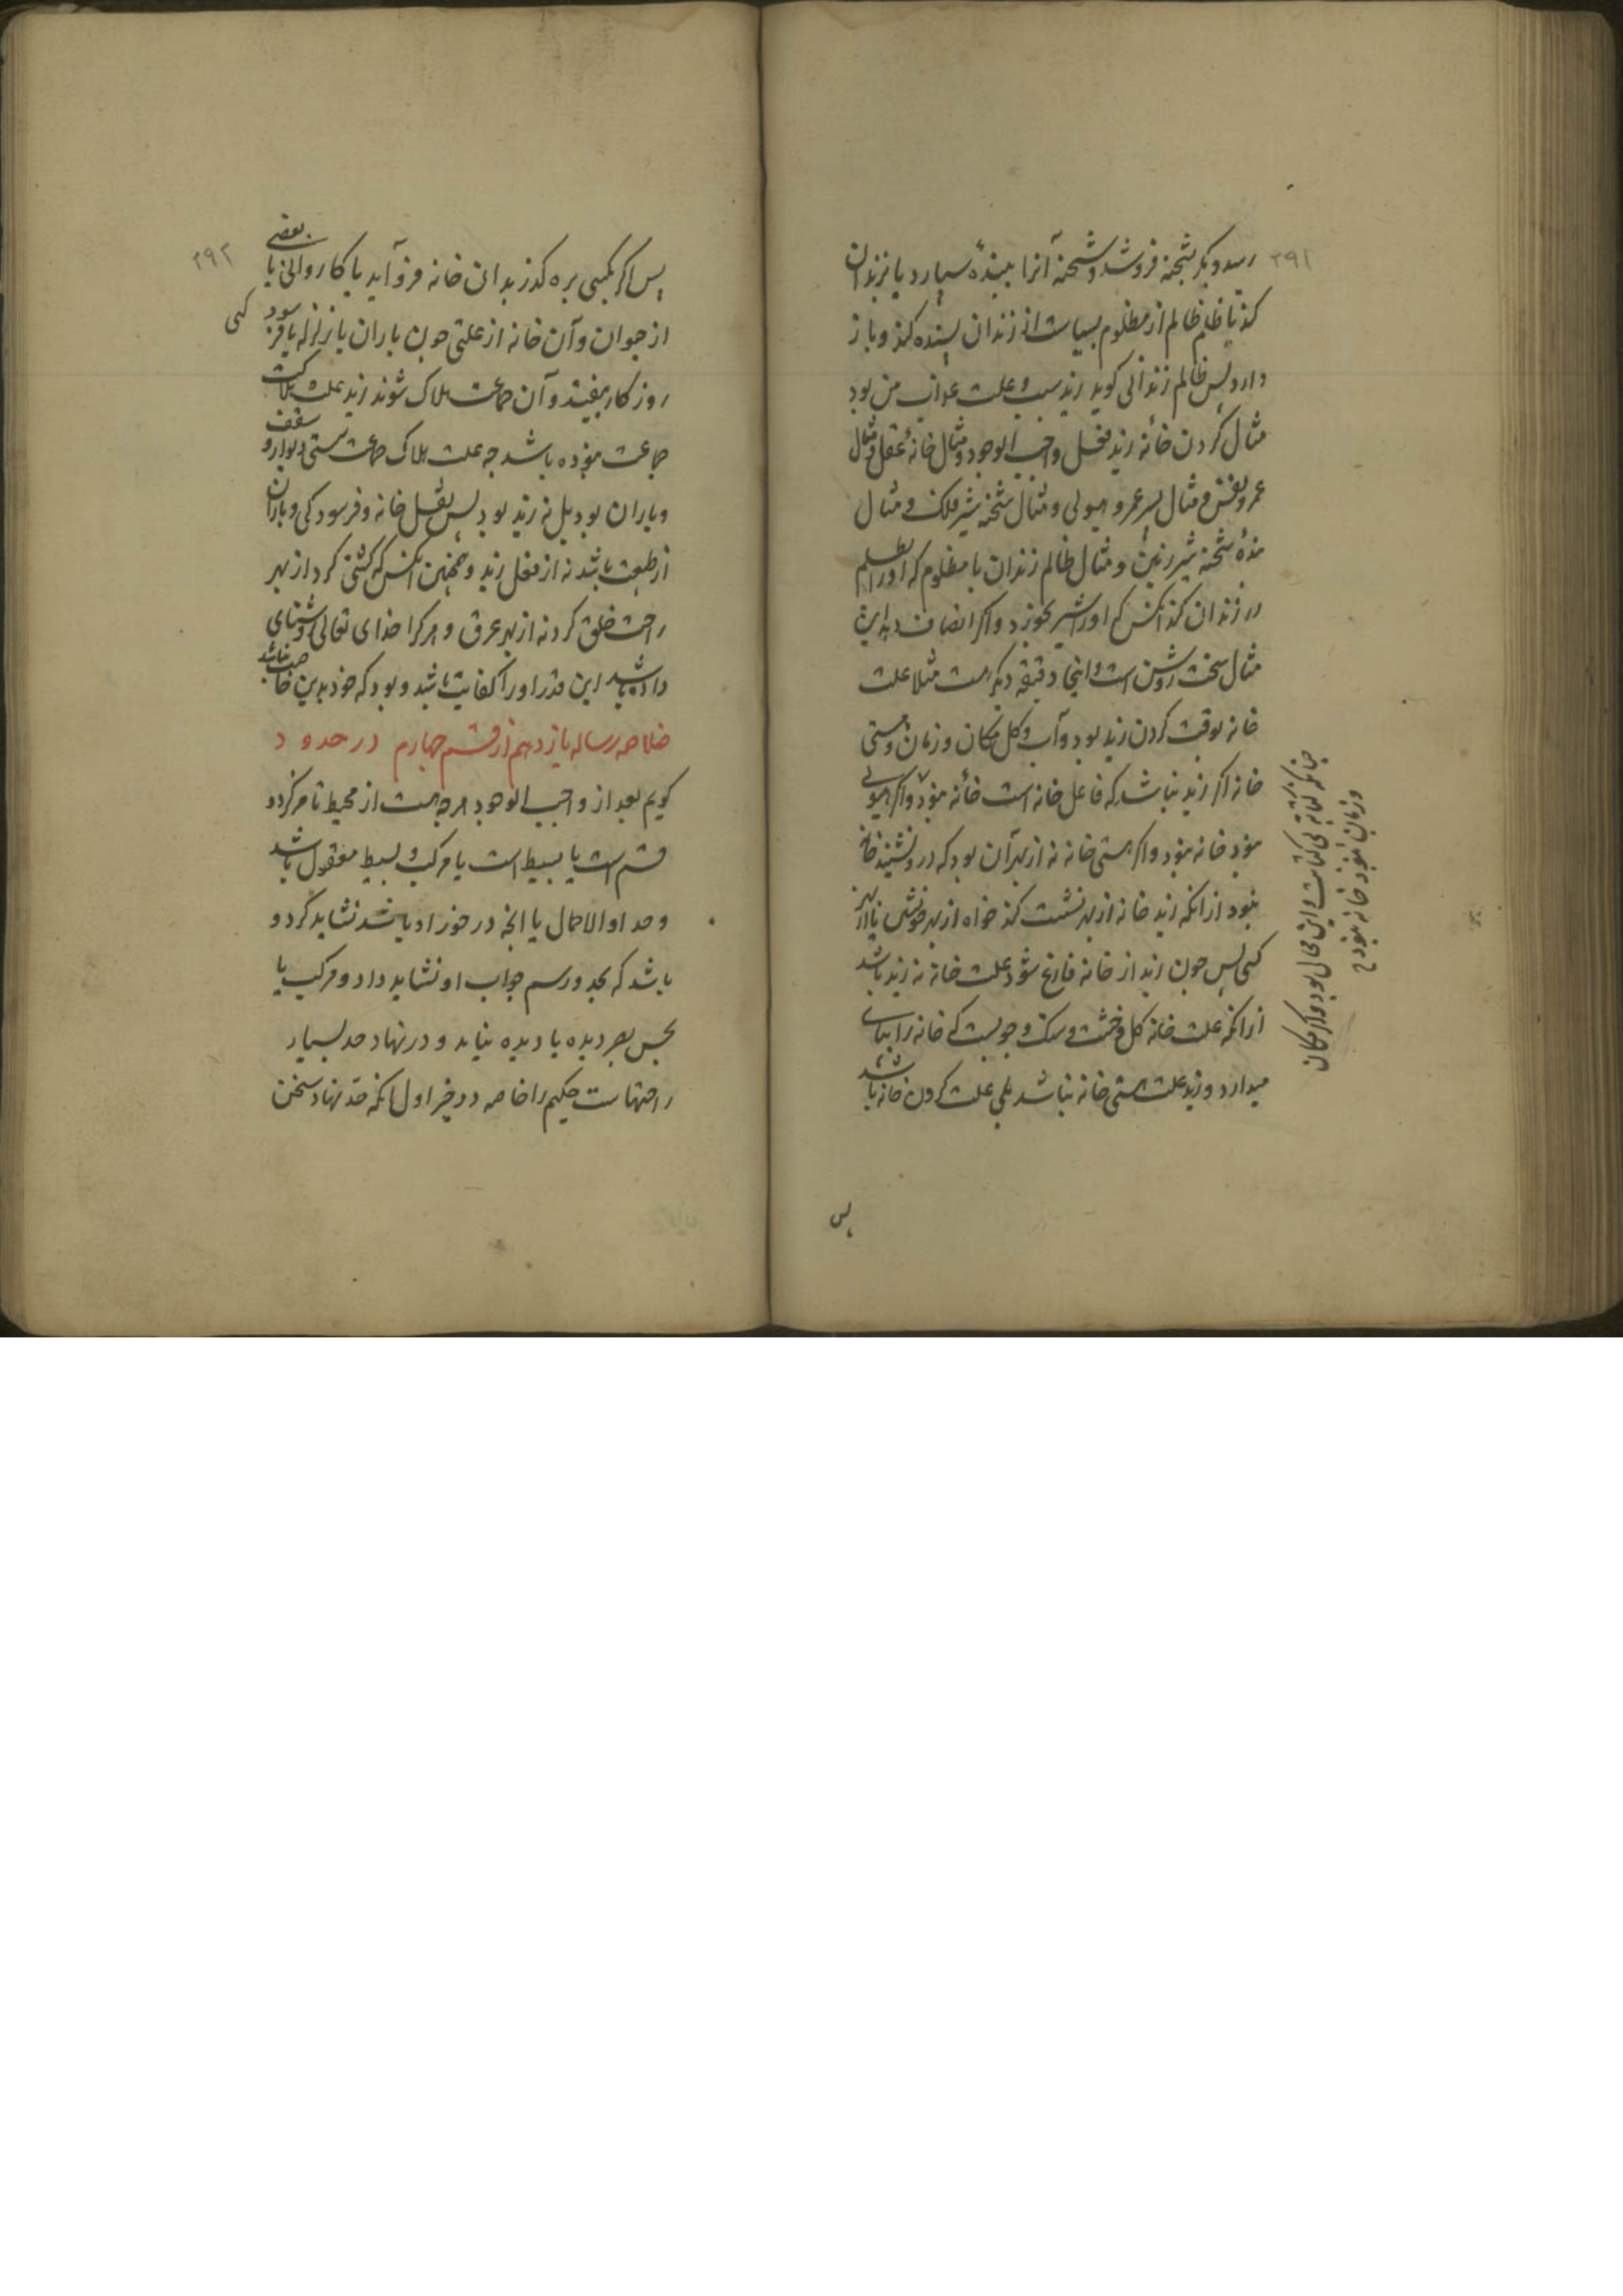 ۲۹۱
رسد و بکر بشحنه فروشد و شحنه آنرا ببندهٔ سپارد یا بزندان
کند تا ظلم ظالم از مظلوم بسیاست از زندان بسنده کند و باز
دارد پس ظالم زندانی کوید زید سبب و علت عذاب من بود
مثال کردن خانه زید فعل واجب الوجود و مثال خانه عقل و مثال
عمرو نفس و مثال پسر عمرو هیولی و مثال شحنه شیر فلک و مثال
بندهٔ شحنه شیر زمین و مثال ظالم زندان با مظلوم که او را بظلم
در زندان کند آنکس که او را شیر بخورد و اکر انصاف دهد این
مثال سخت روشن است و اینجا دقیقه دیکر هست مثلا علت
خانه بوقت کردن زید بود و آب و کل و مکان و زمان و هستی
خانه اکر زید نباشد که فاعل خانه است خانه نبود و اکر هیولی
نبود خانه نبود و اکر هستی خانه نه از بهر آن بود که درو نشیند خانه
نبود از آنکه زید خانه از بهر نشست کند خواه از بهر خویش یا از بهر
کسی پس چون زید از خانه فارغ شود علت خانه نه زید باشد
از آنکه علت خانه کل و خشت و سنک و چوبست که خانه را بپای
میدارد و زید علت هستی خانه نباشد بلی علت کردن خانه باشد
و زمان نبود خانه نبود
پس
۲۹۲
پس اکر کسی بره کذر بدان خانه فروآید یا کاروانی یا بعضی
از جوان و آن خانه از علتی چون باران یا زلزله یا فرسود کی
روزکار بیفتد و آن جماعت هلاک شوند زید علت هلاکت
جماعت نبوده باشد چه علت هلاک جماعت سستی دیوار و سقف
و باران بود بل نه زید بود پس بفعل خانه و فرسودکی و باران
از طبیعت باشد نه از فعل زید و همچنین آنکس که کشتی کرد از بهر
راحت خلق کرد نه از بهر غرق و هر کرا خدای تعالی روشنای
داده باشد این قدر او را کفایت باشد و بود که خود بدین حاجت نباشد
خلاصه رساله یازدهم از قسم چهارم در حدود
کویم بعد از واجب الوجود هرچه هست از محیط تا مرکز دو
قسم است یا بسیط است یا مرکب و بسیط معقول باشد
و حد او الا محال یا آنچه در خور او باشد نشاید کرد و
باشد که بحد و رسم جواب او نشاید داد و مرکب یا
بحس بصر دیده یا دیده نیاید و در نهاد حد بسیار
راحتهاست حکیم را خاصه در دو چیز اول آنکه حد نهاد سخن